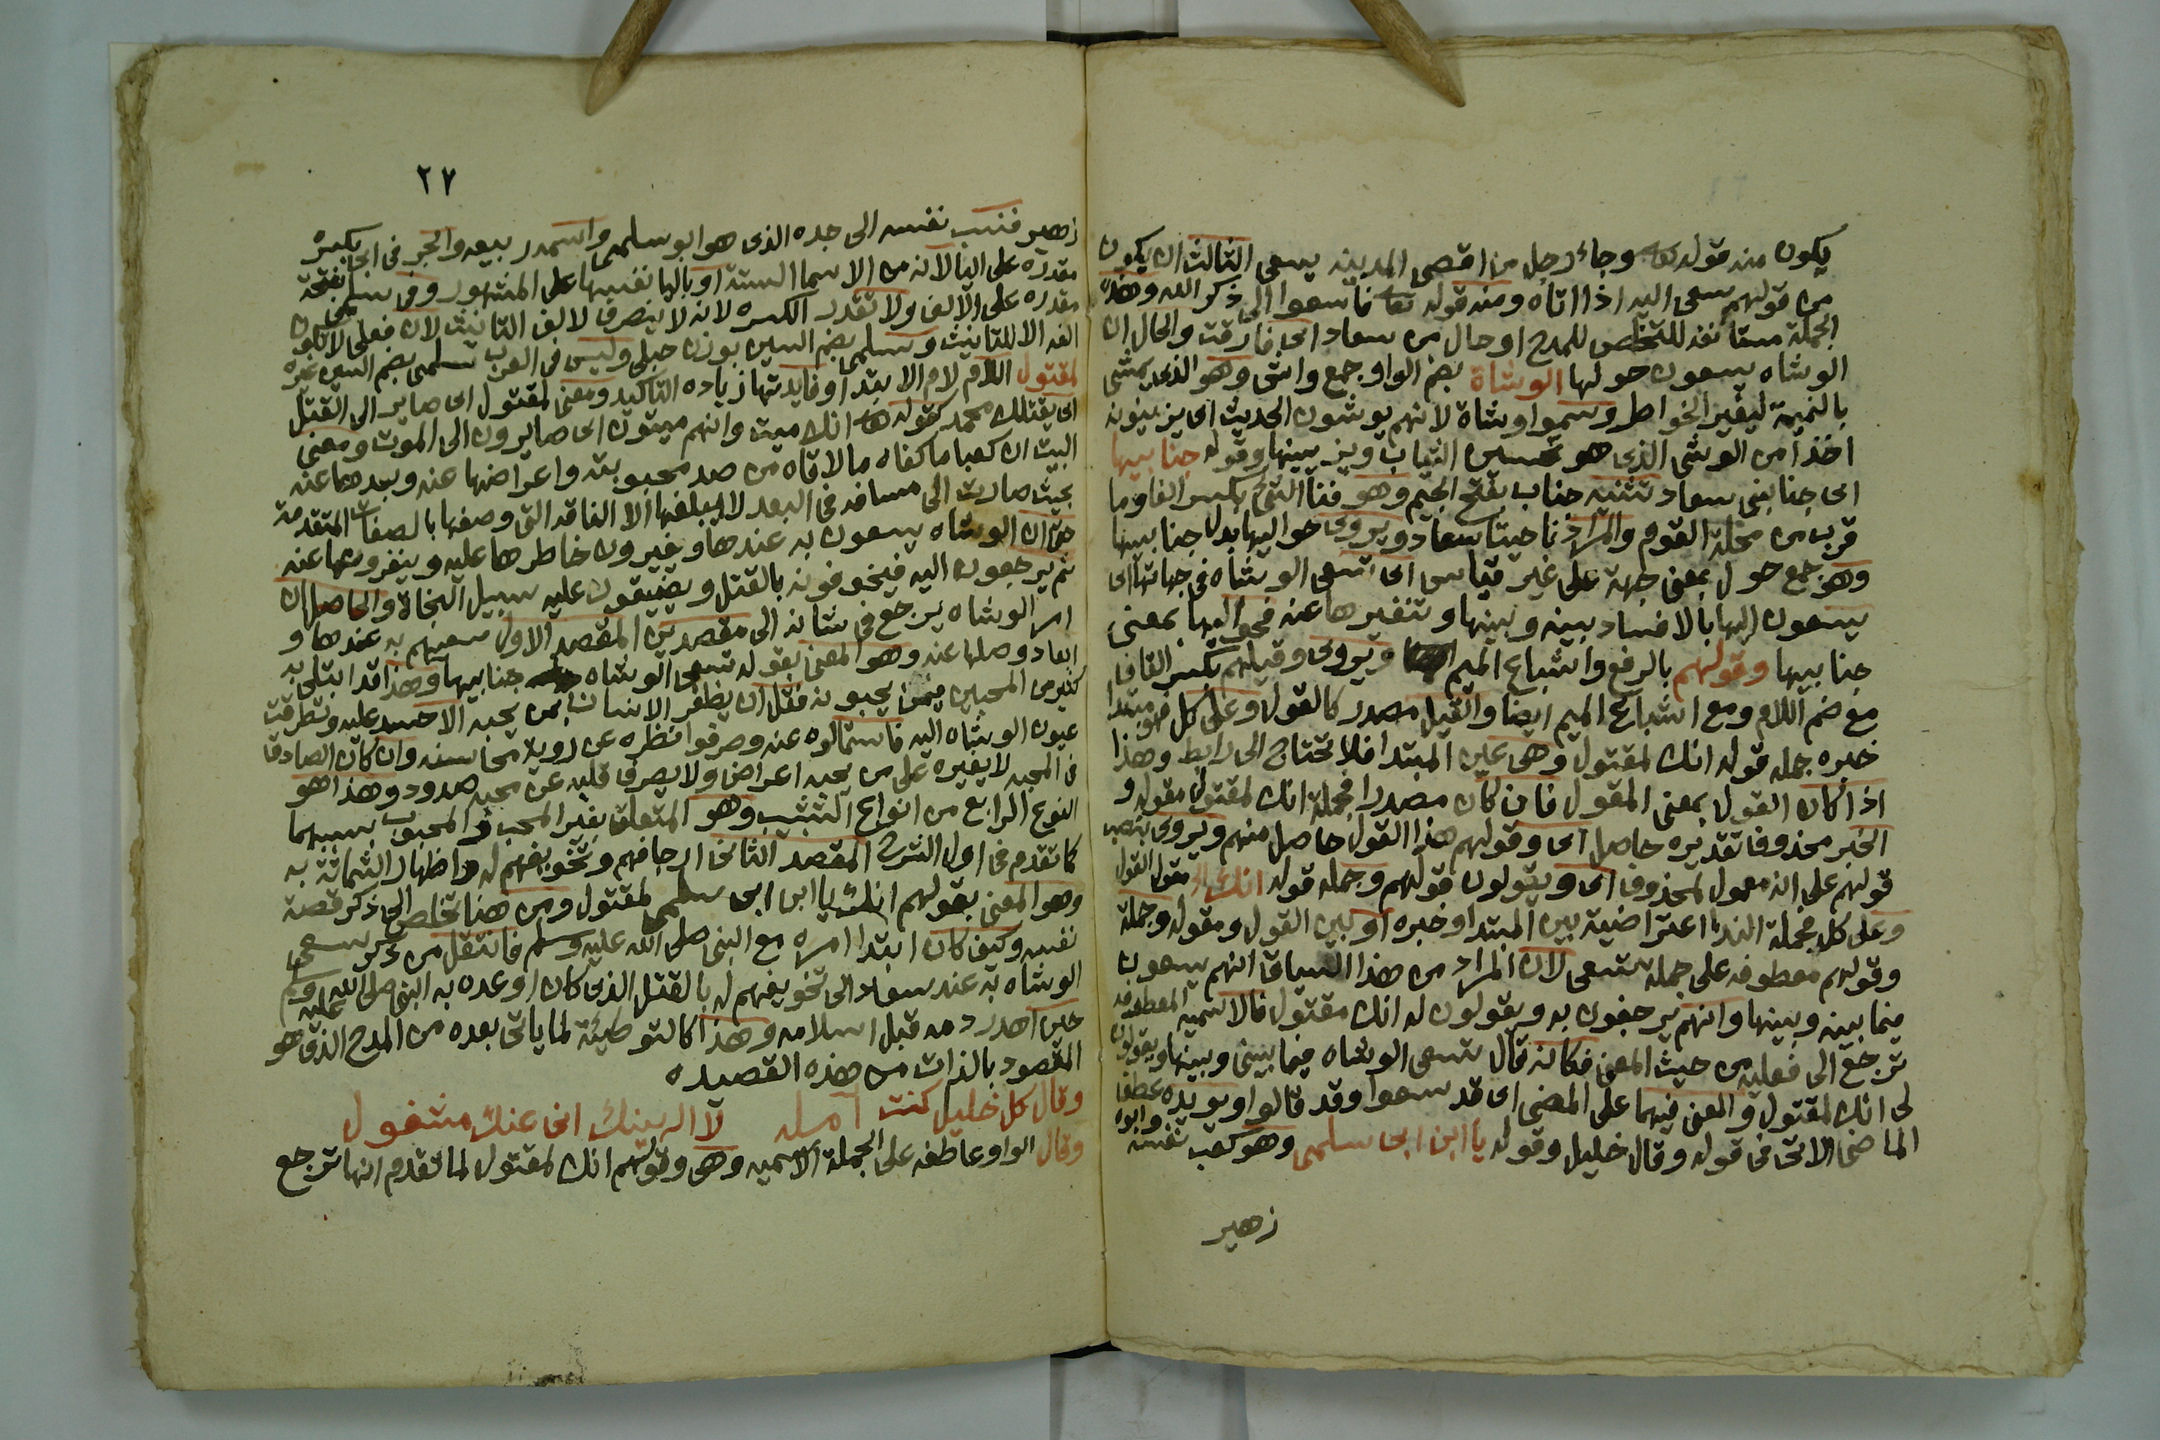 يكون منه قوله تعا وجاء رجل من اقصى المدينه يسعى الثالث ان يكون
من قولهم سعى اليه اذا اتاه ومنه قوله تعا فاسعوا الى ذكر الله وهذه
الجملة مستأنفه للتخلص للمدح او حال من سعاد اى فارقت والحال ان
الوشاه يسعون حولها الوشاة بضم الواو جمع واشى وهو الذى يمشى
بالنميمة ليغير الخواطر وسموا وشاة لانهم يوشون الحديث اى يزينونه
اخذا من الوشى الذى هو تحسين الثياب ويزيينها وقوله جنابيها
اى جنابنى سعاد تثنية جناب بفتح الجيم وهو فنا الشئ بكسر الفا وما
قرب من محلة القوم والمراد ناحيتا سعاد ويروى حواليها بدل جنابيها
وهو جمع حول بمعنى جهة على غير قياس اى تسعى الوشاه فى جهاتها اى
يسعون اليها بالافساد بينه وبينها وتنفيرها عنه فحواليها بمعنى
جنابيها وقولهم بالرفع واشباع الميم ويروى وقيلهم بكسر القاف
مع ضم اللام ومع اشباع الميم ايضا والقيل مصدر كالقول وعلى كل فهو مبتدا
خبره جملة قوله انك لمقتول وهى عين المبتدا فلا تحتاج الى رابط وهذا
اذا كان القول بمعنى المقول فان كان مصدرا فجملة انك لمقتول مقوله و
الخبر محذوفا تقديره حاصل اى وقولهم هذا القول حاصل منهم ويروى بنصب
قولهم على انه معمول لمحذوف اى ويقولون قولهم وجملة قوله انك مقول القول
وعلى كل فجملة الندا اعتراضية بين المبتدا وخبره او بين القول ومقوله وجملة
وقولهم معطوفه على جملة تسعى لان المراد من هذا السياق انهم يسعون
فيما بينه وبينها وانهم يرجفون به ويقولون له انك مقتول فالاسمية المعطوفه
ترجع الى فعلية من حيث المعنى فكانه قال تسعى الوشاه فيما بينى وبينها ويقولون
لى انك لمقتول والمعنى فيهما على المضى اى قد سعوا وقد قالوا ويويده عطف
الماضى الاتى فى قوله وقال خليل وقوله يا ابن ابى سلمى وهو كعب نفسه وابوه
زهير
٢٧
زهير فنسب نفسه الى جده الذى هو ابو سلمى واسمه ربيعه والجر فى ابى بكسره
مقدره على اليا لانه من الاسما الستة او باليا نفسها على المشهور وفى سلمى بفتحة
مقدره على الالف ولا تقدر الكسره لانه لا ينصرف لالف التانيث لان فعلى لا تكون
الفه الا للتانيث وسلمى بضم السين بوزن حبلى وليس فى العرب سلمى بضم السين غيره
لمقتول اللام لام الابتدا وفايدتها زياده التاكيد ومعنى لمقتول اى صاير الى القتل
اى يقتلك محمد كقوله تعا انك ميت وانهم ميتون اى صايرون الى الموت ومعنى
البيت ان كعبا ما كفاه ما لاقاه من صد محبوبته واعراضها عنه وبعدها عنه
بحيث صارت الى مسافه فى البعد لا يبلغها الا الناقه التى وصفها بالصفات المتقدمة
حتى ان الوشاه يسعون به عندها ويغيرون خاطرها عليه وينفرونها عنه
ثم يرجعون اليه فيخوفونه بالقتل ويضيقون عليه سبيل النجاة والحاصل ان
امر الوشاه يرجع فى شانه الى مقصدين المقصد الاول سعيهم به عندها و
ابعاد وصلها عنه وهو المعنى بقوله تسعى الوشاه جنابيها وهذا قد ابتلى به
كثير من المحبين فمن يحبونه فقل ان يظفر الانسان بمن يحبه الا حسد عليه وتطرقت
عيون الوشاه اليه فاستمالوه عنه وصرفوا نظره عن روية محاسنه وان كان الصادق
فى المحبه لا يغيره على من يحبه اعراض ولا يصرف قلبه عن محبه صدود وهذا هو
النوع الرابع من انواع التشبيب وهو المتعلق بغير المحب والمحبوب بسببهما
كما تقدم فى اول الشرح المقصد الثانى ارجافهم وتخويفهم له واظهار الشماتة به
وهو المعنى بقولهم انك يا ابن ابى سلمى لمقتول ومن هنا تخلص الى ذكر قصة
نفسه وكيف كان ابتدا امره مع النبى صلى الله عليه وسلم فانتقل من ذكر سعى
الوشاه به عند سعاد الى تخويفهم له بالقتل الذى كان اوعده به النبى صلى الله عليه وسلم
حين اهدر دمه قبل اسلامه وهذا كالتوطيئة لما ياتى بعده من المدح الذى هو
المقصود بالذات من هذه القصيده
وقال كل خليل كنت آمله لا الهينك انى عنك مشغول
وقال الواو عاطفه على الجملة الاسميه وهى وقولهم انك لمقتول لما تقدم انها ترجع